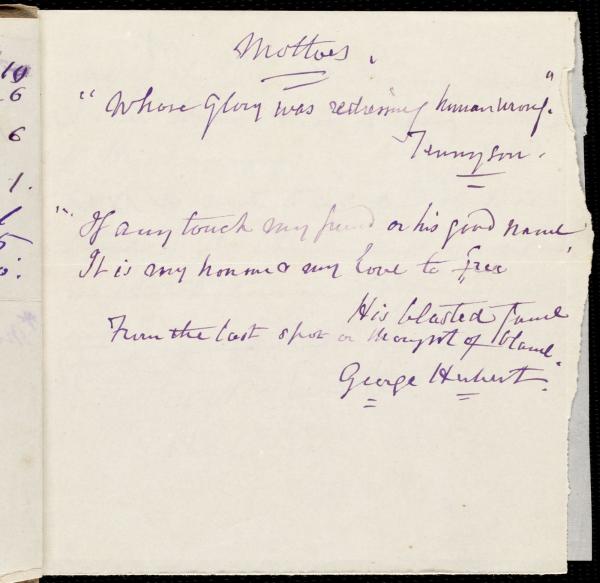 19
6
6
1.
Mottoes.
"Whose Glory was redressing human wrong."
Tennyson.
"If any touch my friend or his good name
It is my honour & my love to free
His blasted fame
From the last spot or thought of blame."
George Herbert.